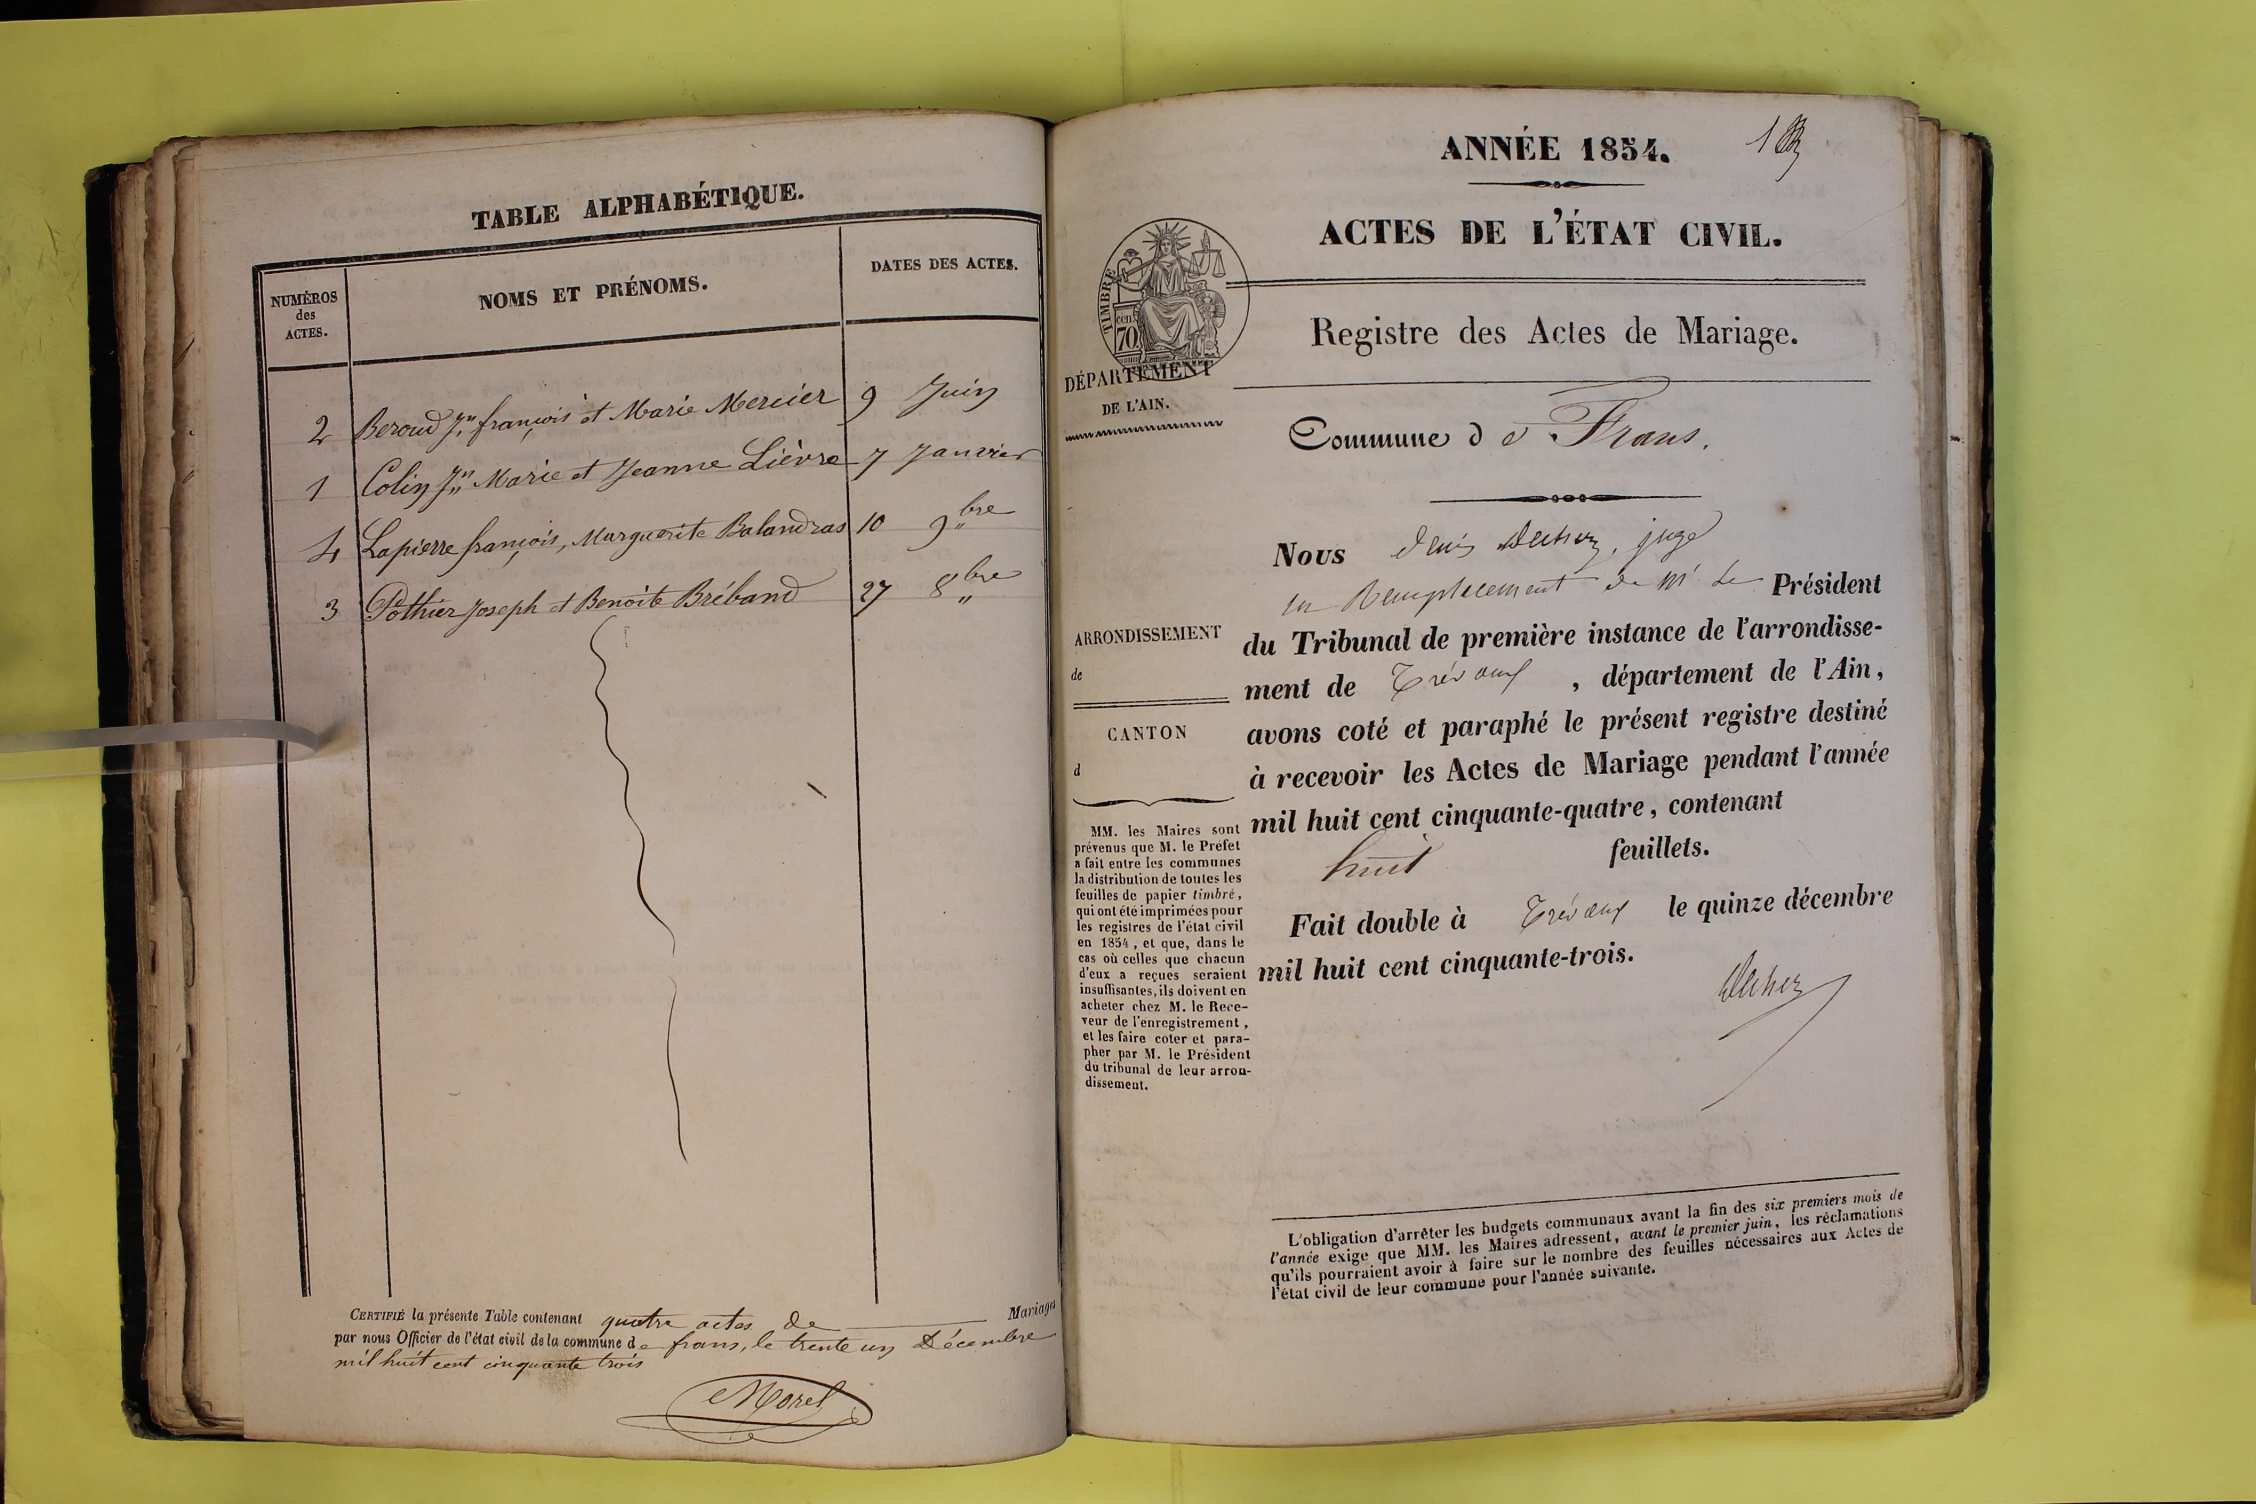 TABLE ALPHABÉTIQUE.
NUMÉROS
des
ACTES.
NOMS ET PRÉNOMS.
DATES DES ACTES.
2 Beroud Jn françois et Marie Mercier 9 Juin
1 Colin Jn Marie et Jeanne Lièvre 7 Janvier
4 Lapierre françois, Marguerite Balandras 10 9bre
3 Pothier Joseph et Benoite Bréband 27 8bre
CERTIFIÉ la présente Table contenant quatre actes de Mariages
par nous Officier de l'état civil de la commune de frans, le trente un Décembre
mil huit cent cinquante trois
Morel
ANNÉE 1854.
ACTES DE L'ÉTAT CIVIL.
TIMBRE
cen.
70
Registre des Actes de Mariage.
DÉPARTEMENT
DE L'AIN.
Commune de Frans.
Nous Denis, juge
en Remplacement de Mr le Président
du Tribunal de première instance de l'arrondisse-
ment de Trévoux, département de l'Ain,
avons coté et paraphé le présent registre destiné
à recevoir les Actes de Mariage pendant l'année
mil huit cent cinquante-quatre, contenant
huit feuillets.
Fait double à Trévoux le quinze décembre
mil huit cent cinquante-trois.
ARRONDISSEMENT
de
CANTON
d
MM. les Maires sont
prévenus que M. le Préfet
a fait entre les communes
la distribution de toutes les
feuilles de papier timbré,
qui ont été imprimées pour
les registres de l'état civil
en 1854, et que, dans le
cas où celles que chacun
d'eux a reçues seraient
insuffisantes, ils doivent en
acheter chez M. le Rece-
veur de l'enregistrement,
et les faire coter et para-
pher par M. le Président
du tribunal de leur arron-
dissement.
L'obligation d'arrêter les budgets communaux avant la fin des six premiers mois de
l'année exige que MM. les Maires adressent, avant le premier juin, les réclamations
qu'ils pourraient avoir à faire sur le nombre des feuilles nécessaires aux Actes de
l'état civil de leur commune pour l'année suivante.